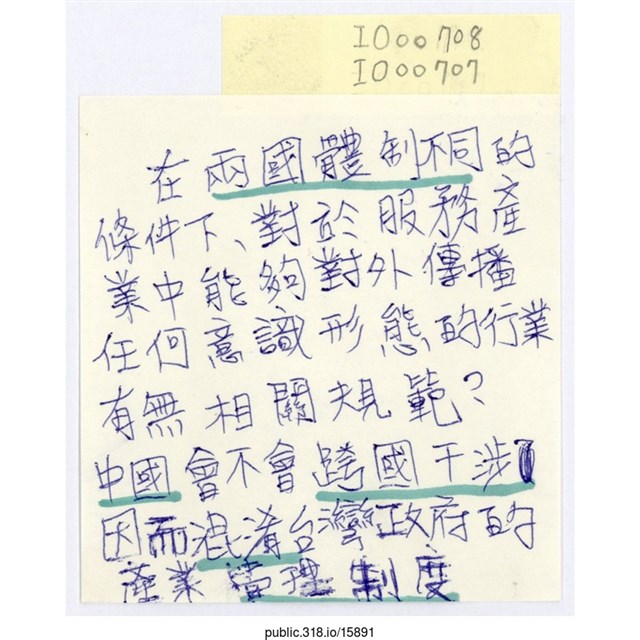 IO00708
IO00707
在兩國體制不同的
條件下、對於服務產
業中能夠對外傳播
任何意識形態的行業
有無相關規範?
中國會不會跨國干涉
因而混淆台灣政府的
產業管理制度
public.318.io/15891